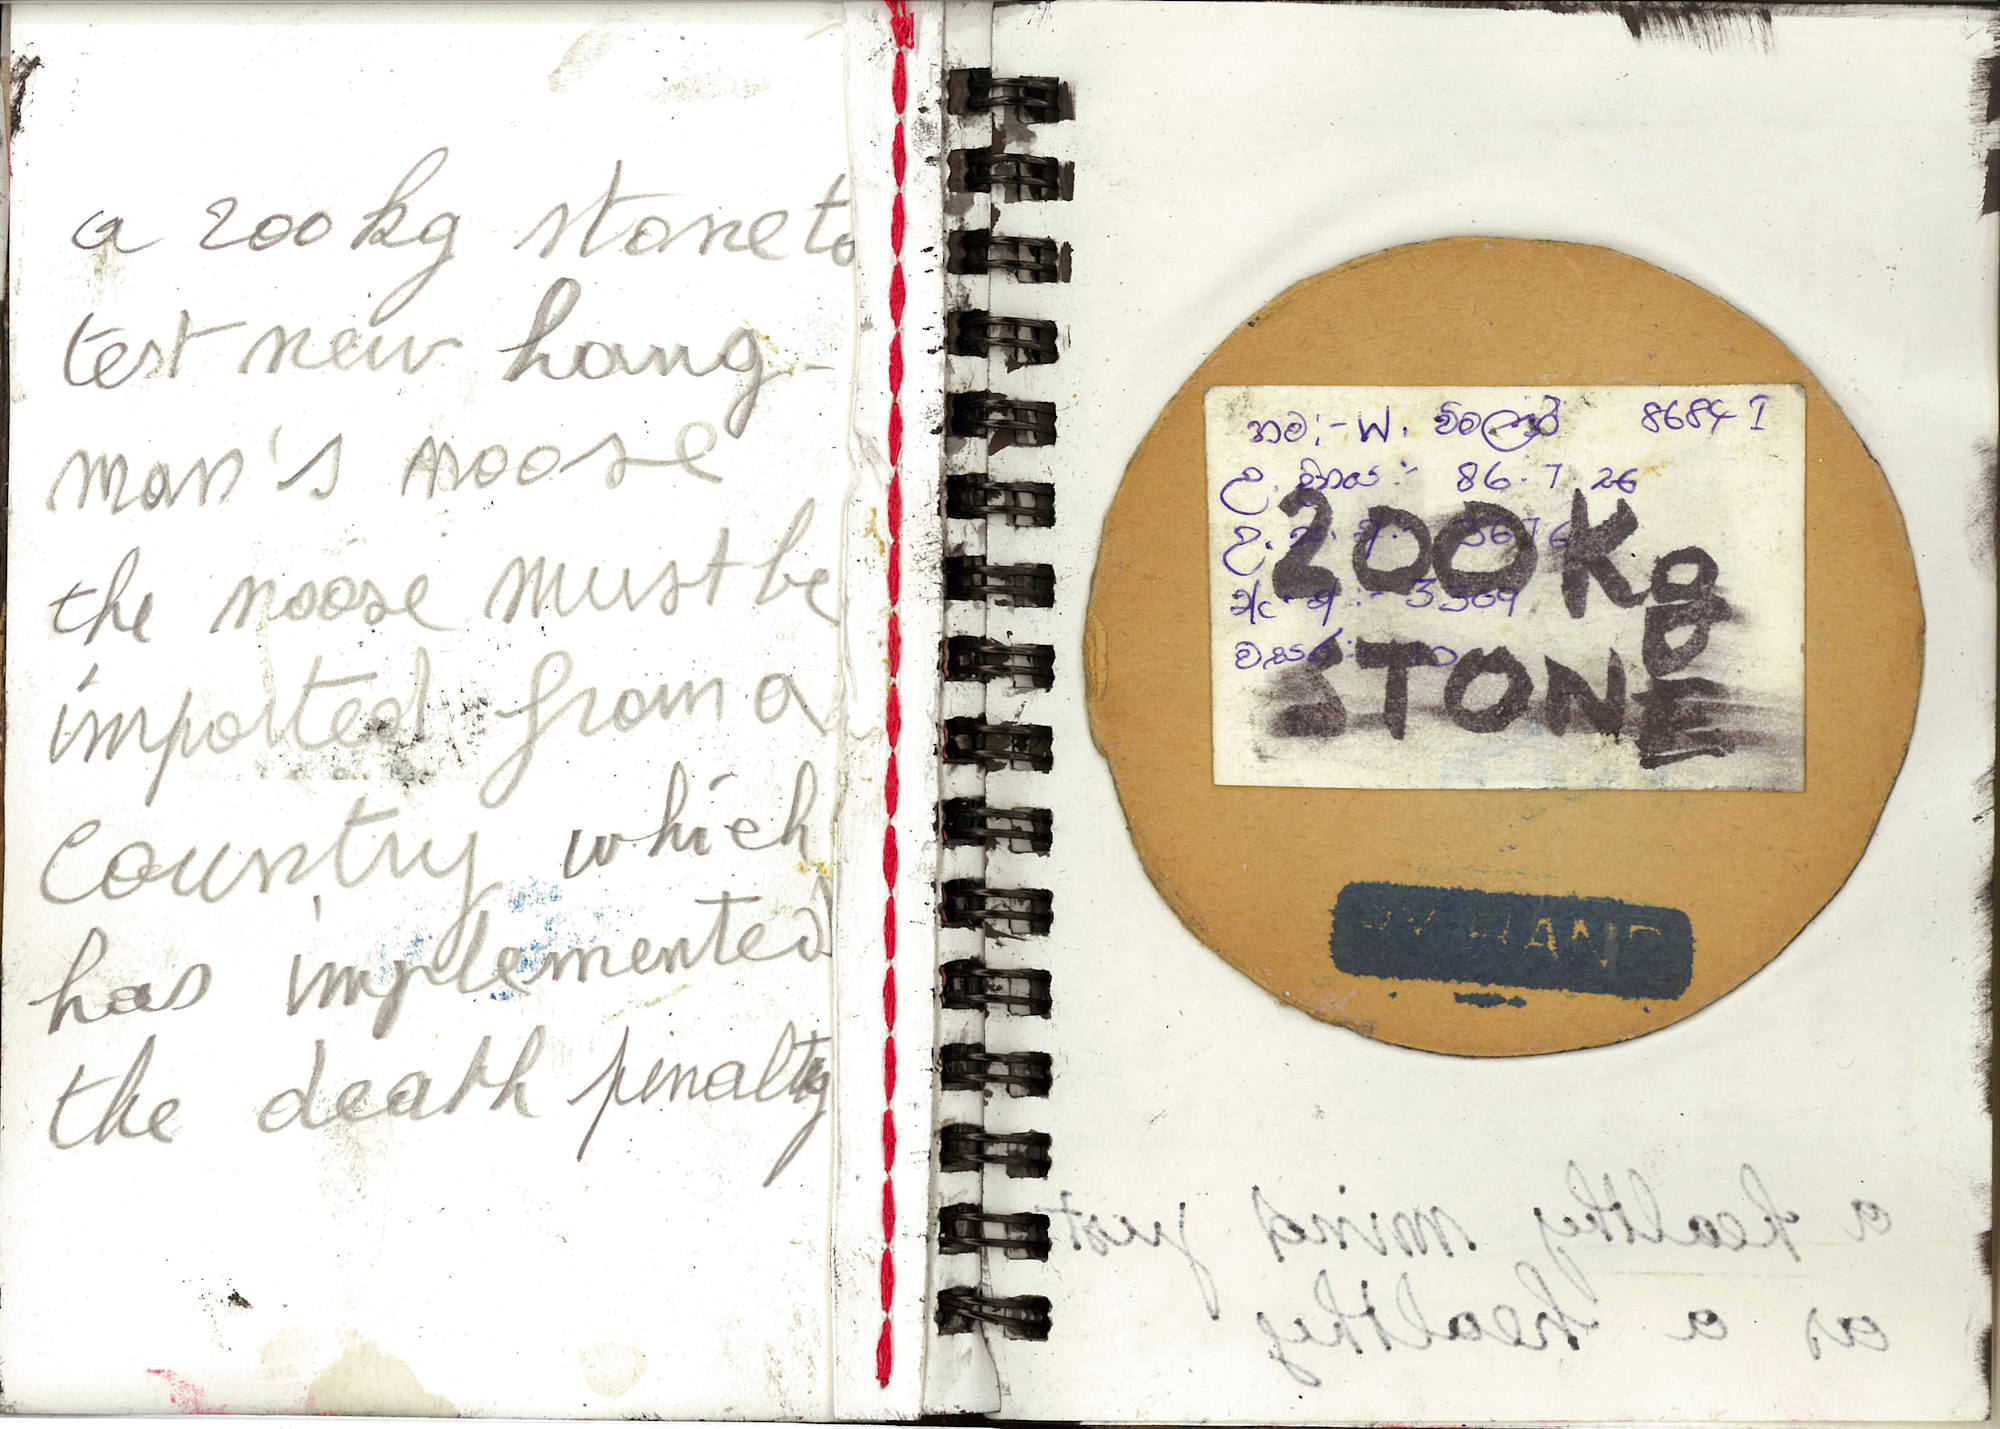 a 200 kg stone to
test new hang-
man's noose
the noose must be
imported from a
country which
has implemented
the death penalty
නම:- W. විමලසූරි 8684 I
උ. දිනය:- 86.7.26
200 Kg
STONE
BY HAND
a healthy mind just
as a healthy